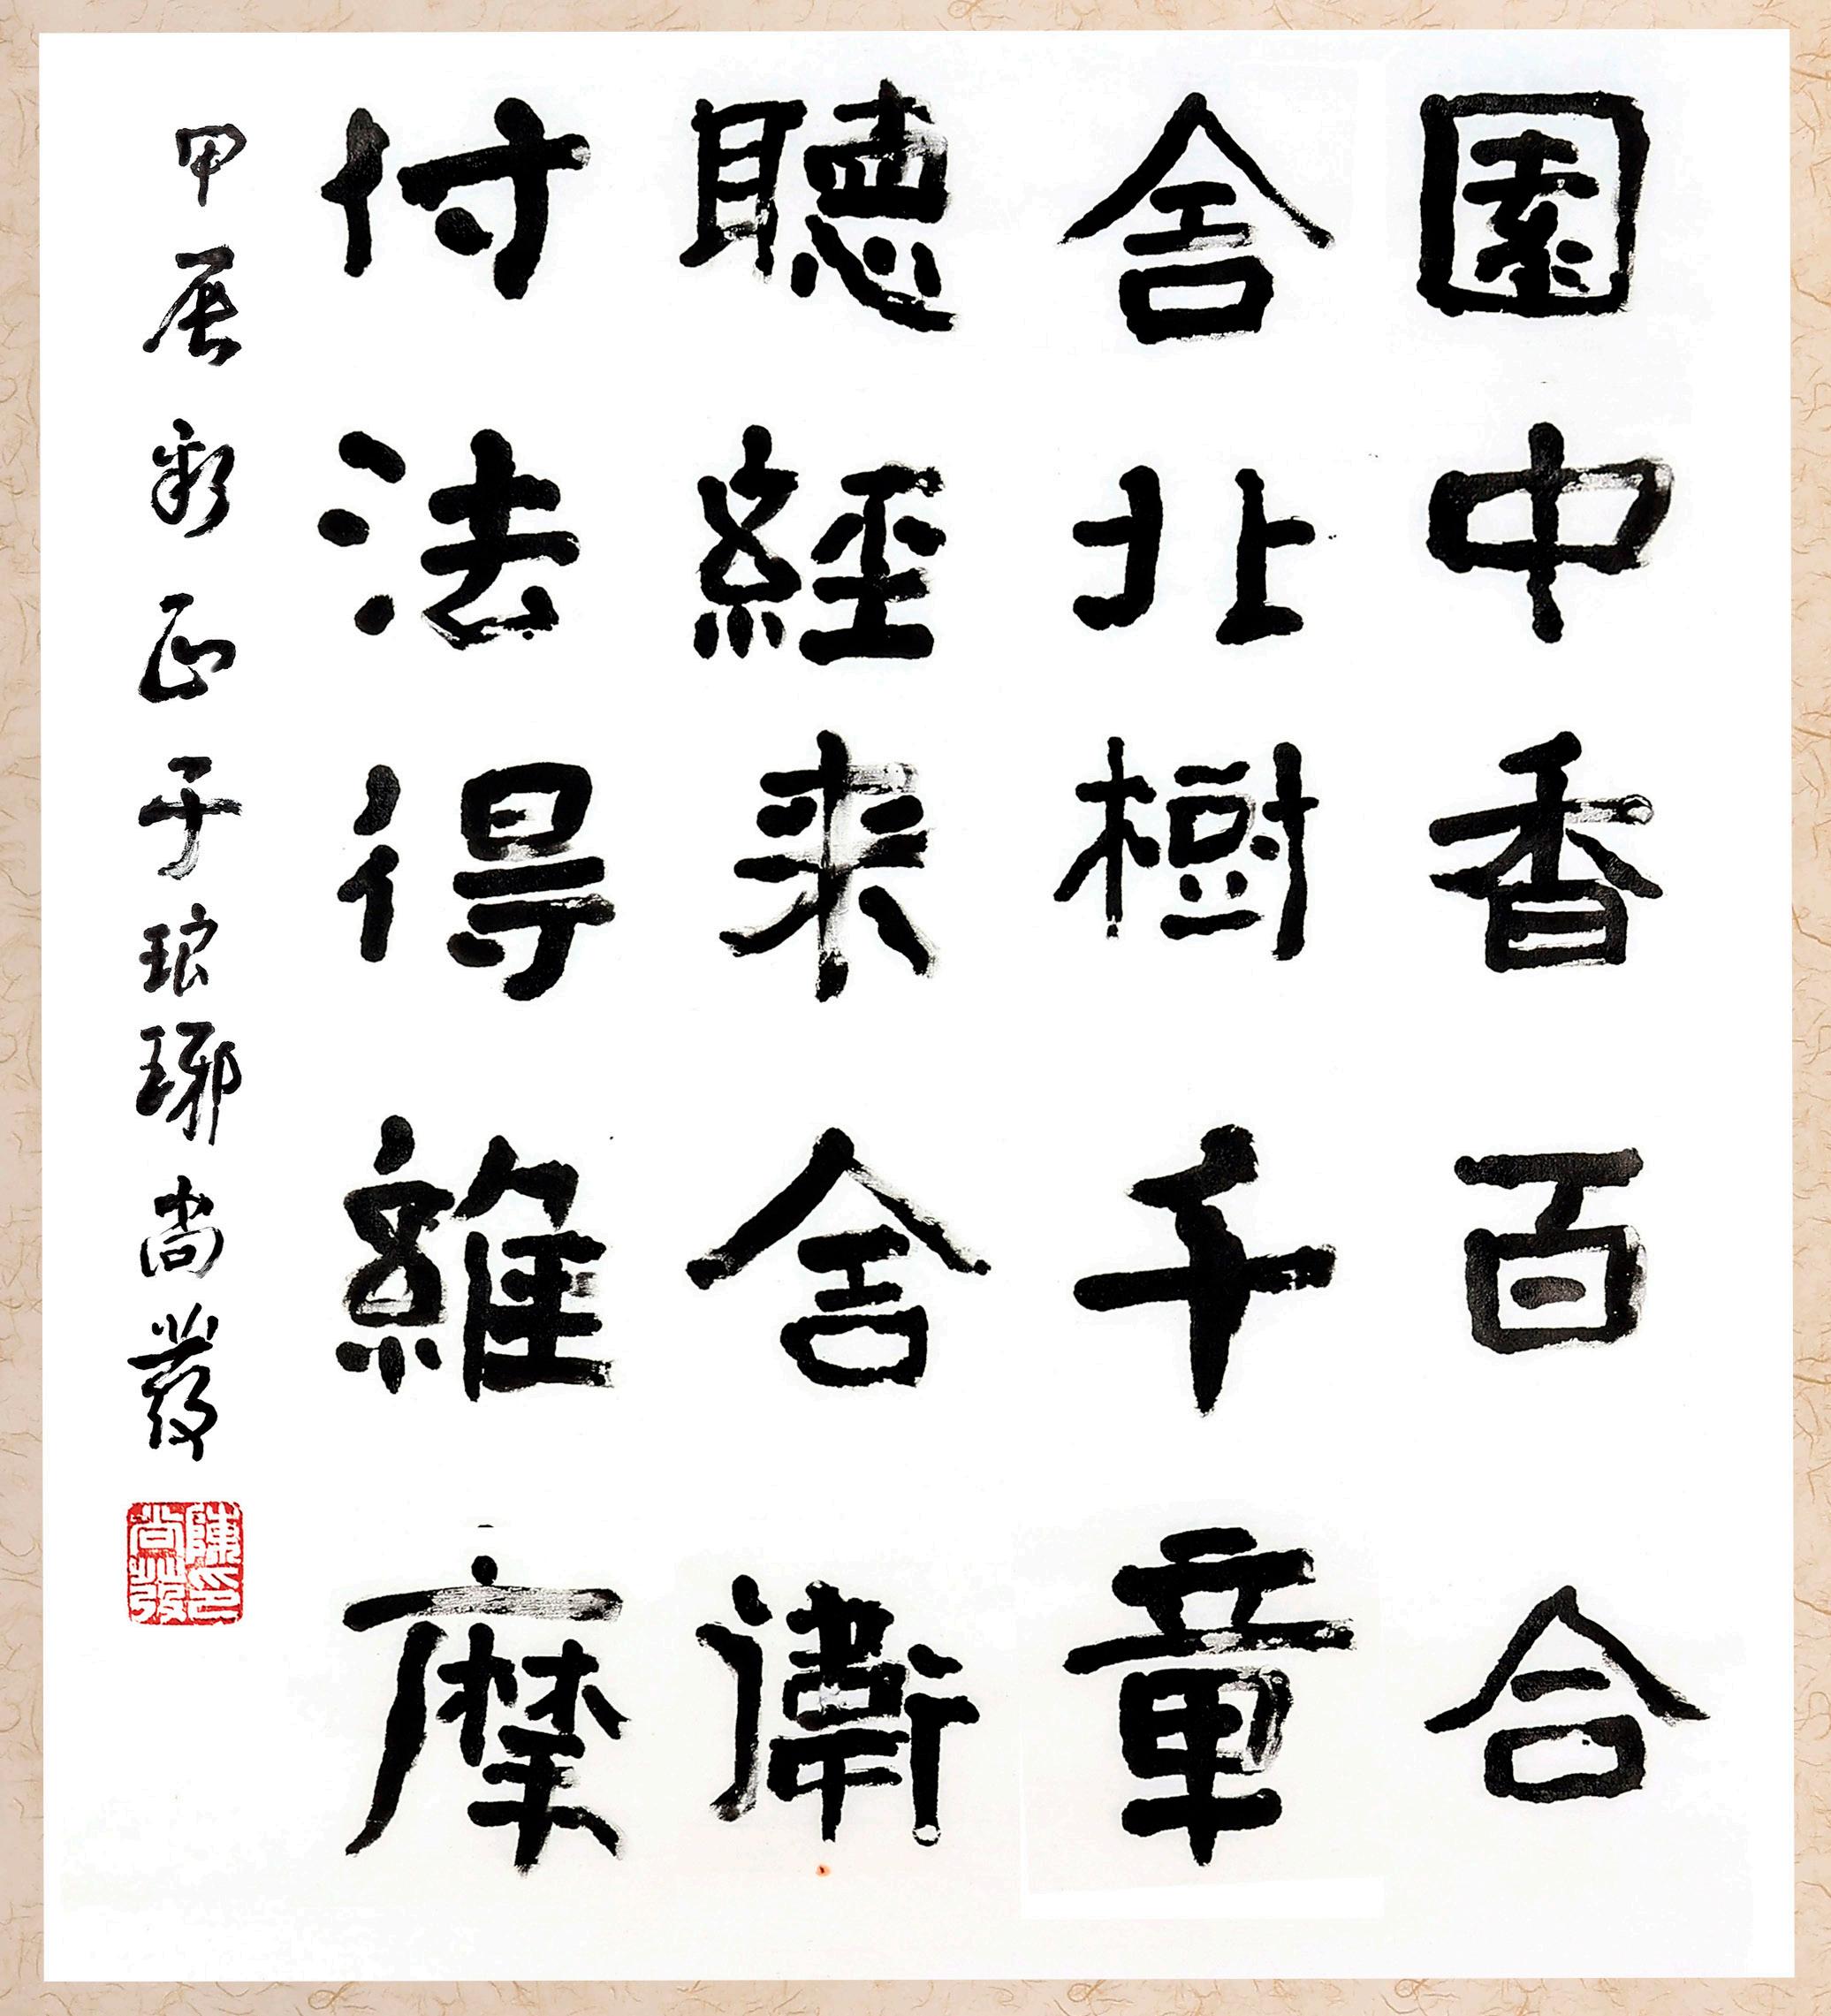 園中香百合
舍北樹千章
聽經来舍衛
付法得維摩
甲辰新正于琅琊尚發
陳印尚發